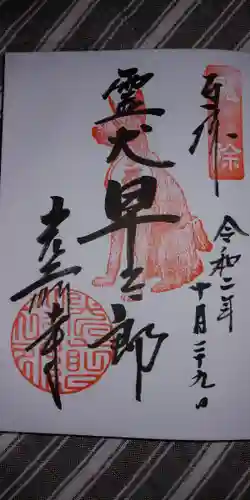 奉拝
令和二年
十月二十九日
霊犬早太郎
光前寺